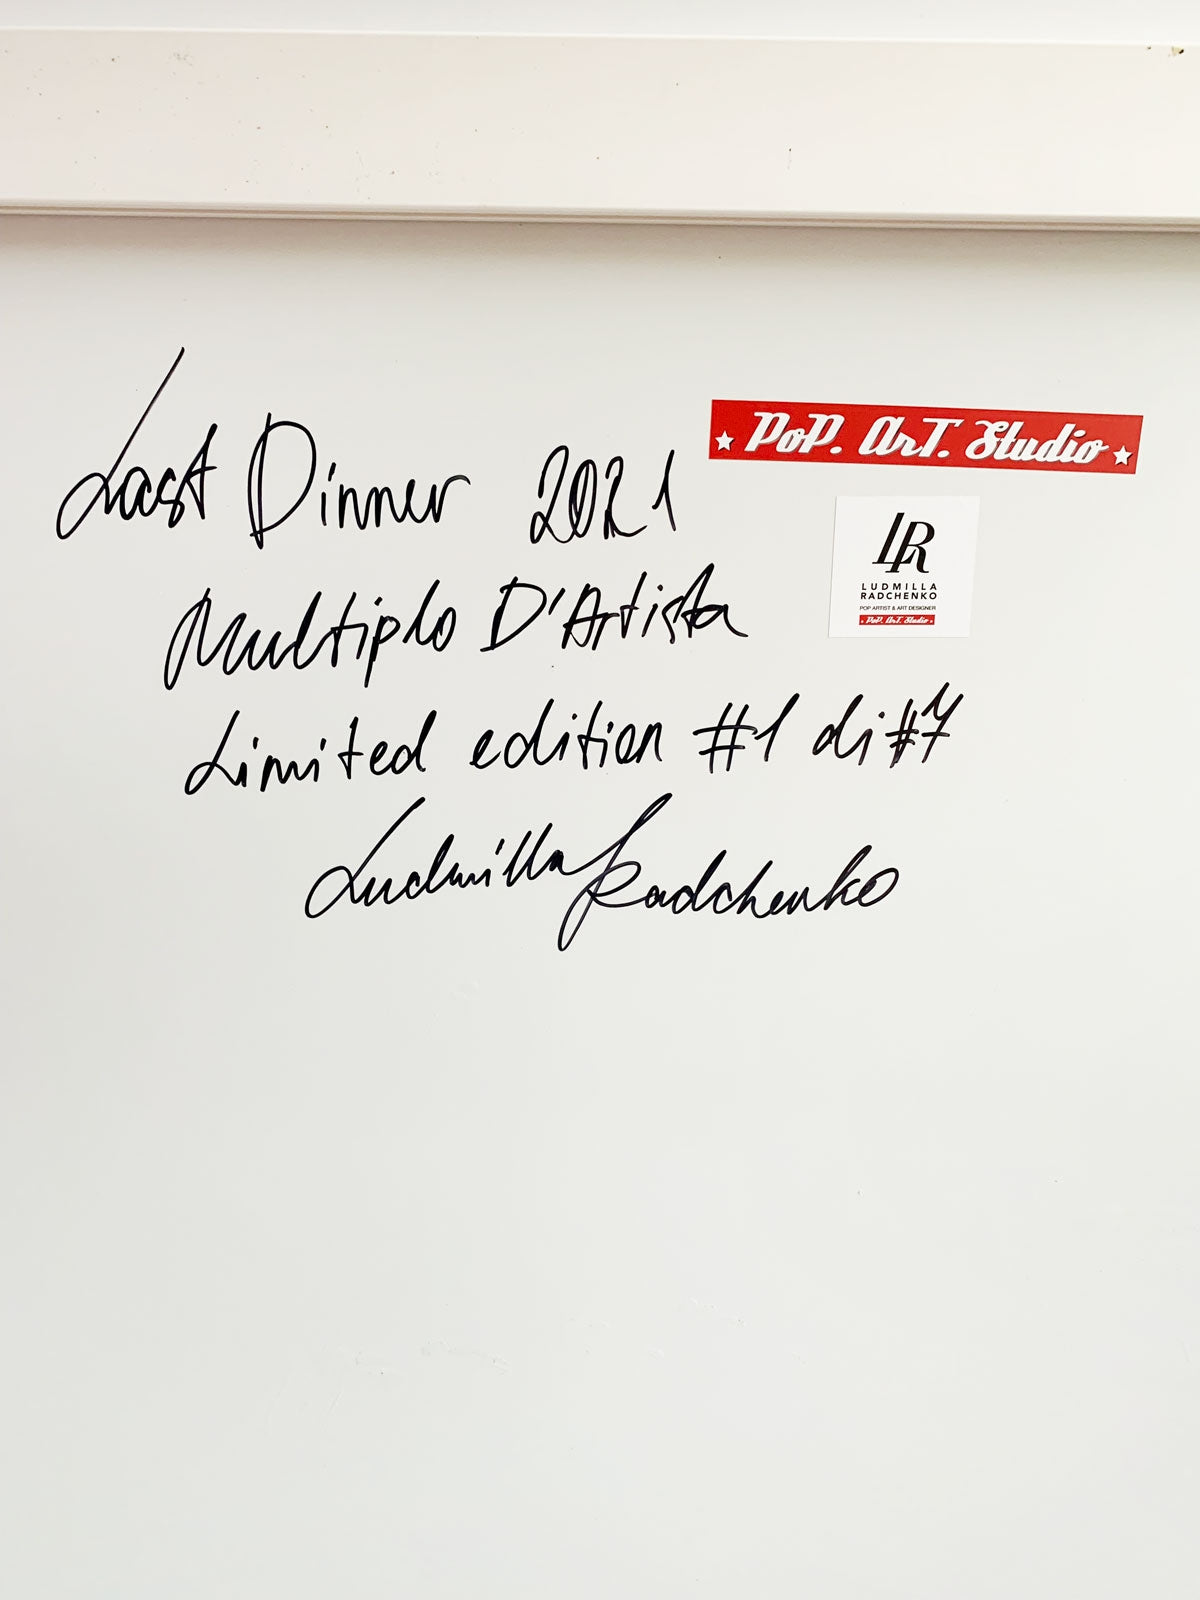 Last Dinner 2021
Multiplo D'Artista
Limited edition #1 di #7
Ludmilla Radchenko
PoP. ArT. Studio
LR
LUDMILLA
RADCHENKO
POP ARTIST & ART DESIGNER
PoP. ArT. Studio